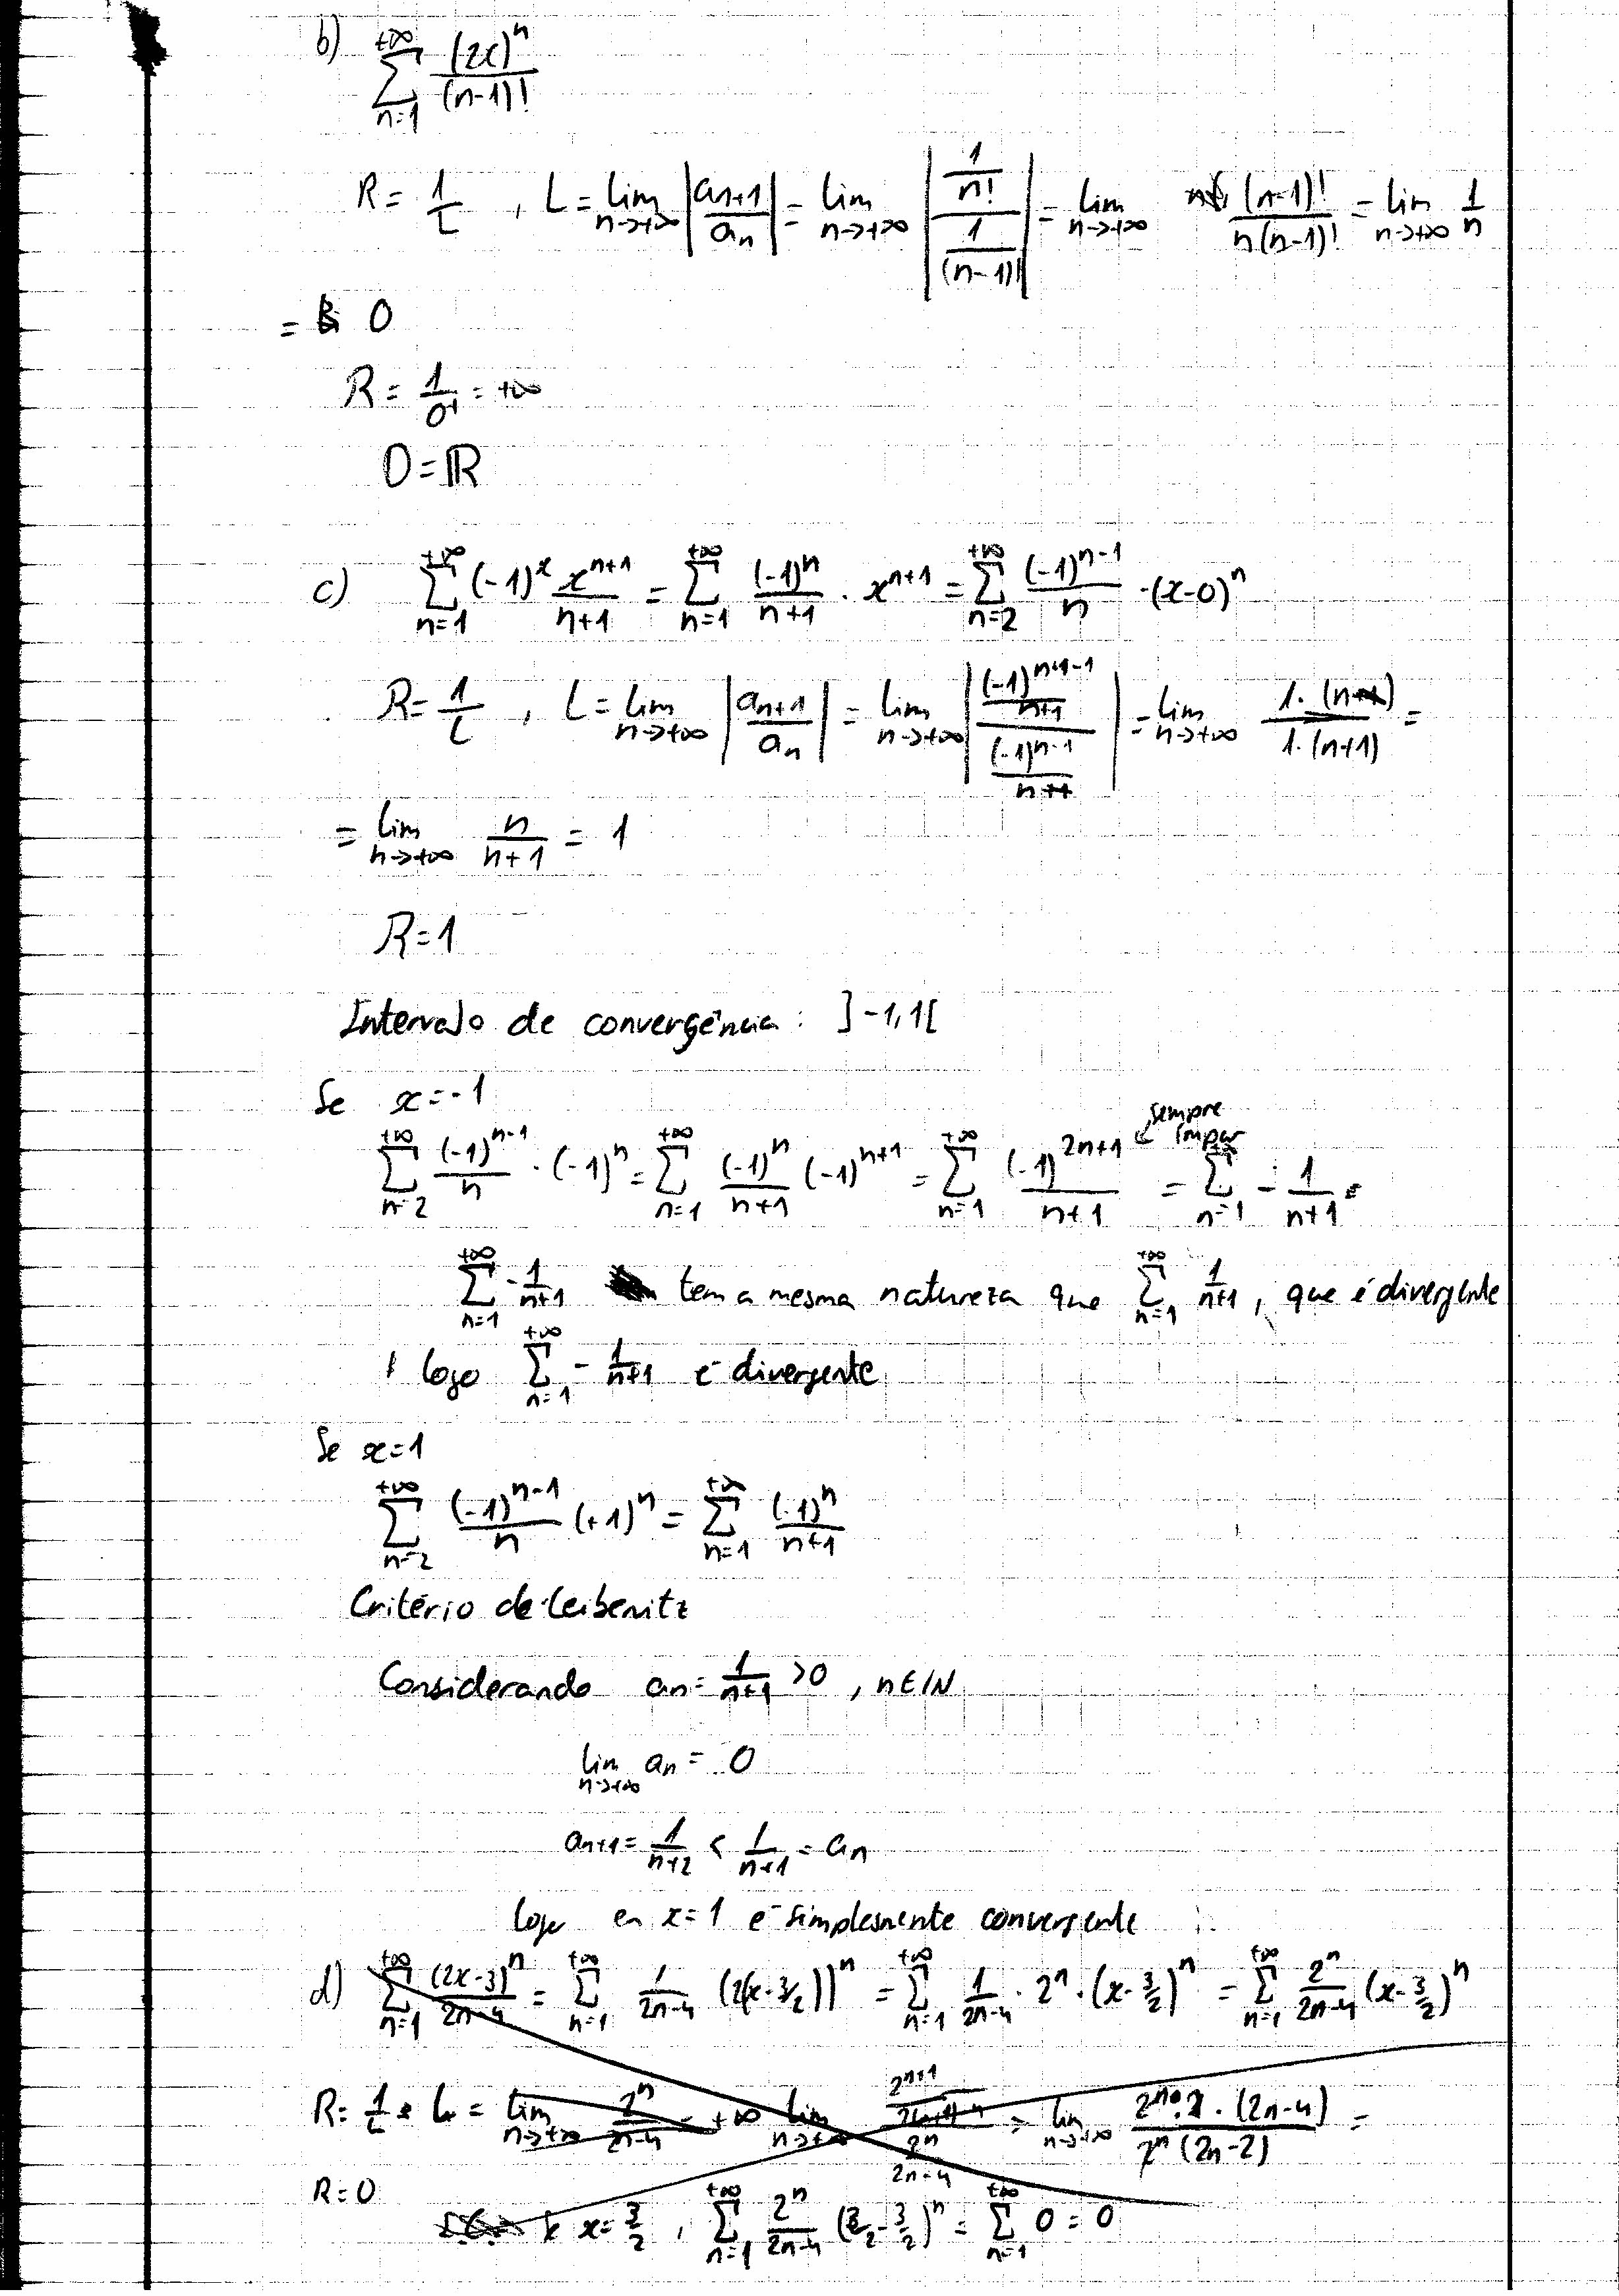 b) \sum_{n=1}^{+\infty} \frac{(2x)^n}{(n-1)!}
R = \frac{1}{L} , L = \lim_{n \to +\infty} \left| \frac{a_{n+1}}{a_n} \right| = \lim_{n \to +\infty} \left| \frac{\frac{1}{n!}}{\frac{1}{(n-1)!}} \right| = \lim_{n \to +\infty} \frac{(n-1)!}{n(n-1)!} = \lim_{n \to +\infty} \frac{1}{n}
= 0
R = \frac{1}{0^+} = +\infty
D = ℝ
c) \sum_{n=1}^{+\infty} (-1)^x \frac{x^{n+1}}{n+1} = \sum_{n=1}^{+\infty} \frac{(-1)^n}{n+1} \cdot x^{n+1} = \sum_{n=2}^{+\infty} \frac{(-1)^{n-1}}{n} \cdot (x-0)^n
R = \frac{1}{L} , L = \lim_{n \to +\infty} \left| \frac{a_{n+1}}{a_n} \right| = \lim_{n \to +\infty} \left| \frac{\frac{(-1)^{n+1-1}}{n+1}}{\frac{(-1)^{n-1}}{n}} \right| = \lim_{n \to +\infty} \frac{1 \cdot (n)}{1 \cdot (n+1)} =
= \lim_{n \to +\infty} \frac{n}{n+1} = 1
R = 1
Intervalo de convergência : ]-1,1[
Se x = -1
\sum_{n=2}^{+\infty} \frac{(-1)^{n-1}}{n} \cdot (-1)^n = \sum_{n=1}^{+\infty} \frac{(-1)^n}{n+1} (-1)^{n+1} = \sum_{n=1}^{+\infty} \frac{(-1)^{2n+1}}{n+1} ← sempre ímpar = \sum_{n=1}^{+\infty} - \frac{1}{n+1} =
\sum_{n=1}^{+\infty} - \frac{1}{n+1} tem a mesma natureza que \sum_{n=1}^{+\infty} \frac{1}{n+1} , que é divergente
, logo \sum_{n=1}^{+\infty} - \frac{1}{n+1} é divergente
Se x = 1
\sum_{n=2}^{+\infty} \frac{(-1)^{n-1}}{n} (+1)^n = \sum_{n=1}^{+\infty} \frac{(-1)^n}{n+1}
Critério de Leibenitz
Considerando a_n = \frac{1}{n+1} > 0 , n ∈ ℕ
\lim_{n \to +\infty} a_n = 0
a_{n+1} = \frac{1}{n+2} < \frac{1}{n+1} = a_n
logo em x = 1 é simplesmente convergente
d) \sum_{n=1}^{+\infty} \frac{(2x-3)^n}{2n-4} = \sum_{n=1}^{+\infty} \frac{1}{2n-4} (2(x-3/2))^n = \sum_{n=1}^{+\infty} \frac{1}{2n-4} \cdot 2^n \cdot (x-\frac{3}{2})^n = \sum_{n=1}^{+\infty} \frac{2^n}{2n-4} (x-\frac{3}{2})^n
R = \frac{1}{L} L = \lim_{n \to +\infty} \frac{2^n}{2n-4} = +\infty \lim_{n \to +\infty} \frac{\frac{2^{n+1}}{2(n+1)-4}}{\frac{2^n}{2n-4}} = \lim_{n \to +\infty} \frac{2^n \cdot 2 \cdot (2n-4)}{2^n (2n-2)} =
R = 0
x = \frac{3}{2} , \sum_{n=1}^{+\infty} \frac{2^n}{2n-4} (\frac{3}{2}-\frac{3}{2})^n = \sum_{n=1}^{+\infty} 0 = 0